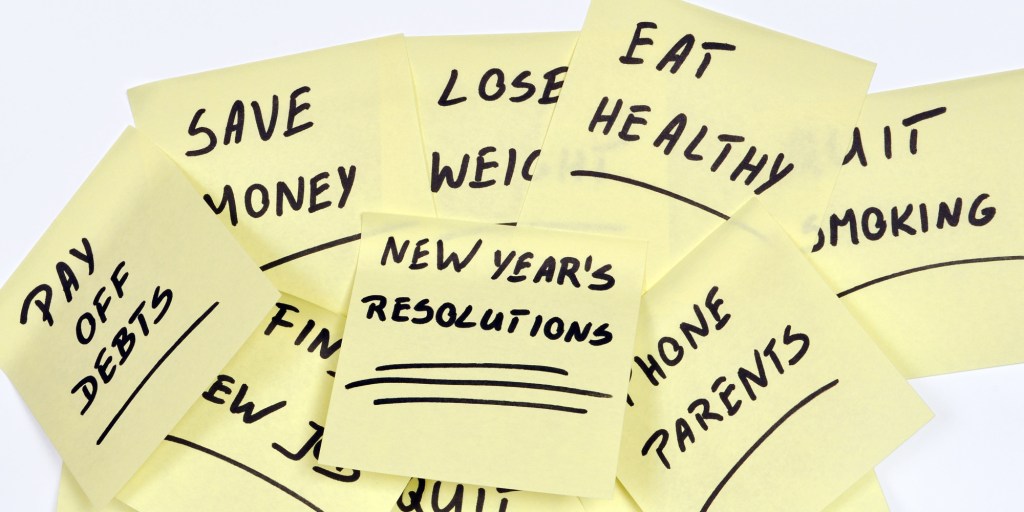 SAVE
MONEY
LOSE
WEIG
EAT
HEALTHY
UIT
SMOKING
PAY
OFF
DEBTS
NEW YEAR'S
RESOLUTIONS
FIN
EW JOB
HONE
PARENTS
QUIT